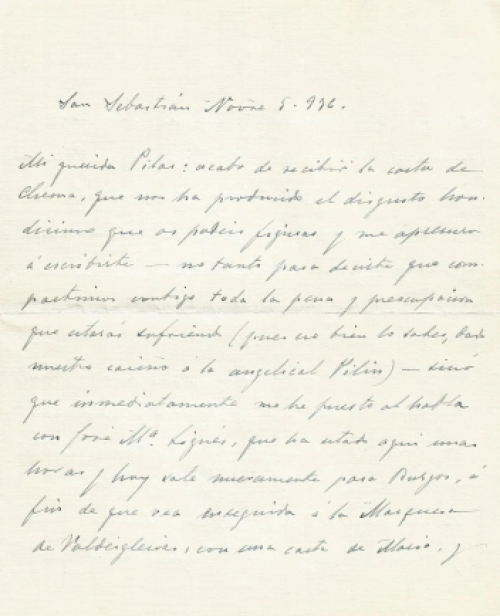 San Sebastián Novre 5. 936.
Mi querida Pilar: acabo de recibir la carta de
Chema, que nos ha producido el disgusto hon-
dísimo que os podeis figurar y me apresuro
á escribirte — no tanto para decirte que com-
partimos contigo toda la pena y preocupacion
que estarás sufriendo (pues eso bien lo sabes, dado
nuestro cariño á la angelical Pilín) — sinó
que inmediatamente me he puesto al habla
con José Mª. , que ha estado aqui unas
horas y hoy sale nuevamente para Burgos, á
fin de que vea enseguida á la Marquesa
de Valdeiglesias, con una carta de , y